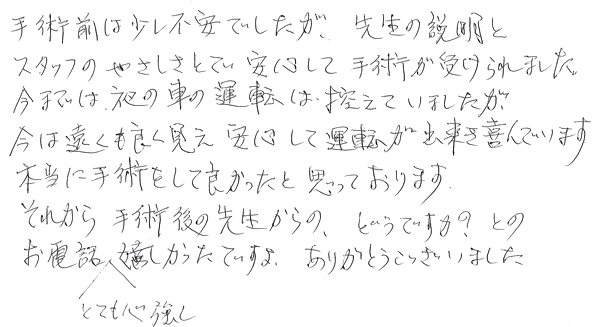 手術前は少し不安でしたが、先生の説明と
スタッフのやさしさとで、安心して手術が受けられました。
今までは、夜の車の運転は控えていましたが、
今は遠くも良く見え安心して運転が出来き喜んでいます
本当に手術をして良かったと思っております。
それから手術後の先生からの、どうですか?との
お電話嬉しかったですよ。ありがとうございました
とても心強し